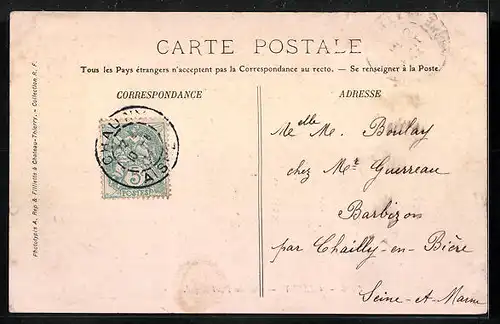 CARTE POSTALE
Tous les Pays étrangers n'acceptent pas la Correspondance au recto. — Se renseigner à la Poste.
CORRESPONDANCE
ADRESSE
Melle M. Boulay
chez Mr Guerreau
Barbizon
par Chailly-en-Bière
Seine-et-Marne
CHAU
AISNE
5
POSTES
Phototypie A. Rep & Filliette à Chateau-Thierry. - Collection R. F.